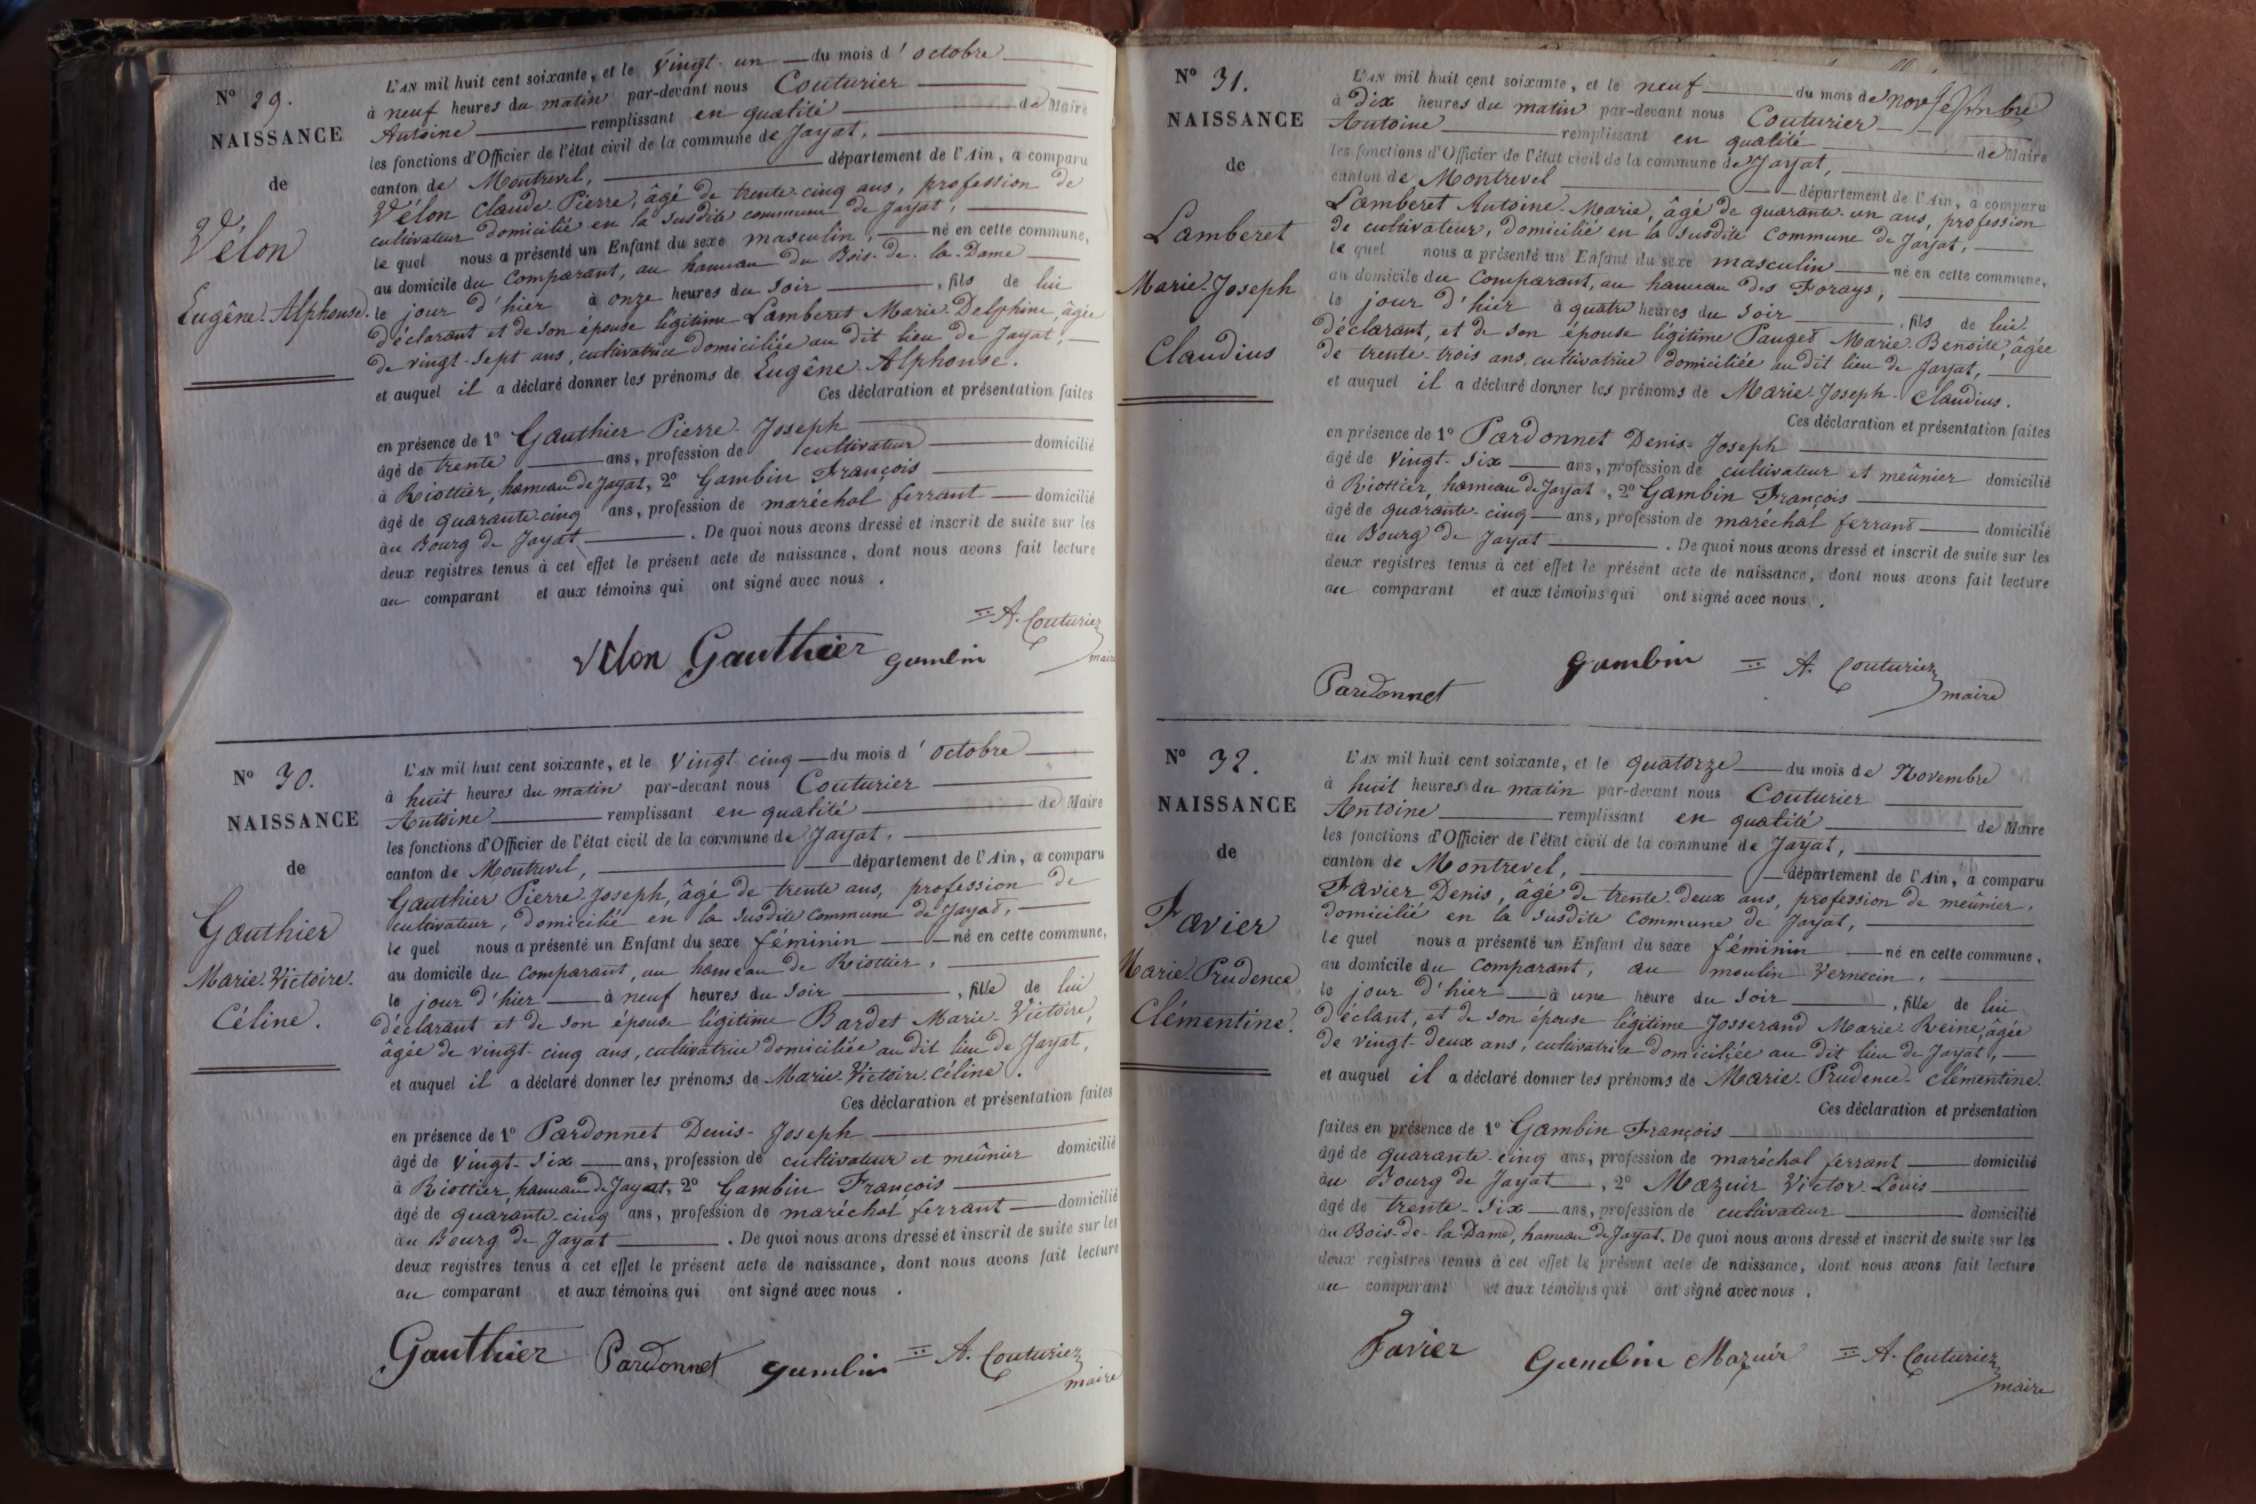 Nº 29.
NAISSANCE
de
Vélon
Eugêne-Alphonse.
L'AN mil huit cent soixante, et le Vingt-un du mois d'octobre
à neuf heures du matin par-devant nous Couturier
Antoine remplissant en qualité de Maire
les fonctions d'Officier de l'état civil de la commune de Jayat,
canton de Montrevel, département de l'Ain, a comparu
Vélon Claude-Pierre, âgé de trente-cinq ans, profession de
cultivateur domicilié en la susdite commune de Jayat,
le quel nous a présenté un Enfant du sexe masculin, né en cette commune,
au domicile du comparant, au hameau du Bois-de-la-Dame
le jour d'hier à onze heures du soir, fils de lui
déclarant et de son épouse légitime Lamberet Marie-Delphine, âgée
de vingt-sept ans, cultivatrice domiciliée au dit lieu de Jayat,
et auquel il a déclaré donner les prénoms de Eugêne-Alphonse.
Ces déclaration et présentation faites
en présence de 1º Gauthier Pierre-Joseph
âgé de trente ans, profession de cultivateur domicilié
à Riottier, hameau de Jayat, 2º Gambin François
âgé de quarante-cinq ans, profession de maréchal ferrant domicilié
au Bourg de Jayat. De quoi nous avons dressé et inscrit de suite sur les
deux registres tenus à cet effet le présent acte de naissance, dont nous avons fait lecture
au comparant et aux témoins qui ont signé avec nous.
Vélon Gauthier Gambin A. Couturier
maire
Nº 30.
NAISSANCE
de
Gauthier
Marie-Victoire-
Céline.
L'AN mil huit cent soixante, et le Vingt-cinq du mois d'octobre
à huit heures du matin par-devant nous Couturier
Antoine remplissant en qualité de Maire
les fonctions d'Officier de l'état civil de la commune de Jayat,
canton de Montrevel, département de l'Ain, a comparu
Gauthier Pierre-Joseph, âgé de trente ans, profession de
cultivateur, domicilié en la susdite commune de Jayat,
le quel nous a présenté un Enfant du sexe féminin né en cette commune,
au domicile du comparant, au hameau de Riottier,
le jour d'hier à neuf heures du soir, fille de lui
déclarant et de son épouse légitime Bardet Marie-Victoire,
âgée de vingt-cinq ans, cultivatrice domiciliée au dit lieu de Jayat,
et auquel il a déclaré donner les prénoms de Marie-Victoire-Céline.
Ces déclaration et présentation faites
en présence de 1º Pardonnet Denis-Joseph
âgé de vingt-six ans, profession de cultivateur et meûnier domicilié
à Riottier, hameau de Jayat, 2º Gambin François
âgé de quarante-cinq ans, profession de maréchal ferrant domicilié
au Bourg de Jayat. De quoi nous avons dressé et inscrit de suite sur les
deux registres tenus à cet effet le présent acte de naissance, dont nous avons fait lecture
au comparant et aux témoins qui ont signé avec nous.
Gauthier Pardonnet Gambin A. Couturier
maire
Nº 31.
NAISSANCE
de
Lamberet
Marie-Joseph
Claudius
L'AN mil huit cent soixante, et le neuf du mois de novembre
à dix heures du matin par-devant nous Couturier
Antoine remplissant en qualité de Maire
les fonctions d'Officier de l'état civil de la commune de Jayat,
canton de Montrevel département de l'Ain, a comparu
Lamberet Antoine-Marie, âgé de quarante-un ans, profession
de cultivateur, domicilié en la susdite commune de Jayat,
le quel nous a présenté un Enfant du sexe masculin né en cette commune,
au domicile du comparant, au hameau des Forays,
le jour d'hier à quatre heures du soir, fils de lui
déclarant, et de son épouse légitime Pauget Marie-Benoîte, âgée
de trente-trois ans, cultivatrice domiciliée au dit lieu de Jayat,
et auquel il a déclaré donner les prénoms de Marie-Joseph-Claudius.
Ces déclaration et présentation faites
en présence de 1º Pardonnet Denis-Joseph
âgé de vingt-six ans, profession de cultivateur et meûnier domicilié
à Riottier, hameau de Jayat, 2º Gambin François
âgé de quarante-cinq ans, profession de maréchal ferrant domicilié
au Bourg de Jayat. De quoi nous avons dressé et inscrit de suite sur les
deux registres tenus à cet effet le présent acte de naissance, dont nous avons fait lecture
au comparant et aux témoins qui ont signé avec nous.
Pardonnet Gambin A. Couturier
maire
Nº 32.
NAISSANCE
de
Favier
Marie-Prudence
Clémentine.
L'AN mil huit cent soixante, et le quatorze du mois de Novembre
à huit heures du matin par-devant nous Couturier
Antoine remplissant en qualité de Maire
les fonctions d'Officier de l'état civil de la commune de Jayat,
canton de Montrevel, département de l'Ain, a comparu
Favier Denis, âgé de trente-deux ans, profession de meunier,
domicilié en la susdite commune de Jayat,
le quel nous a présenté un Enfant du sexe féminin né en cette commune,
au domicile du comparant, au moulin Vernecin,
le jour d'hier à une heure du soir, fille de lui
déclant, et de son épouse légitime Josserand Marie-Reine, âgée
de vingt-deux ans, cultivatrice domiciliée au dit lieu de Jayat,
et auquel il a déclaré donner les prénoms de Marie-Prudence-Clémentine.
Ces déclaration et présentation
faites en présence de 1º Gambin François
âgé de quarante-cinq ans, profession de maréchal ferrant domicilié
au Bourg de Jayat, 2º Mazuir Victor-Louis
âgé de trente-six ans, profession de cultivateur domicilié
au Bois-de-la-Dame, hameau de Jayat. De quoi nous avons dressé et inscrit de suite sur les
deux registres tenus à cet effet le présent acte de naissance, dont nous avons fait lecture
au comparant et aux témoins qui ont signé avec nous.
Favier Gambin Mazuir A. Couturier
maire